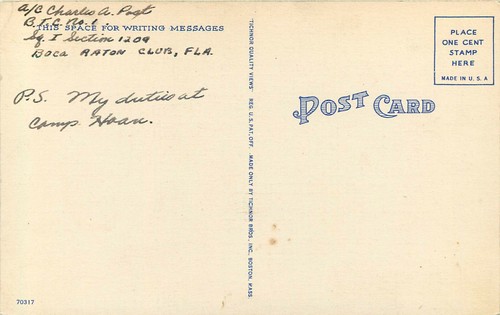 A/C Charles A. Post
B.T.C. No. 1.
THIS SPACE FOR WRITING MESSAGES
Sq. I Section 1209
BOCA RATON CLUB, FLA.
P.S. My duties at
Camp Haan.
TICHNOR QUALITY VIEWS REG. U.S. PAT. OFF. MADE ONLY BY TICHNOR BROS., INC. BOSTON, MASS.
POST CARD
PLACE
ONE CENT
STAMP
HERE
MADE IN U.S.A
70317